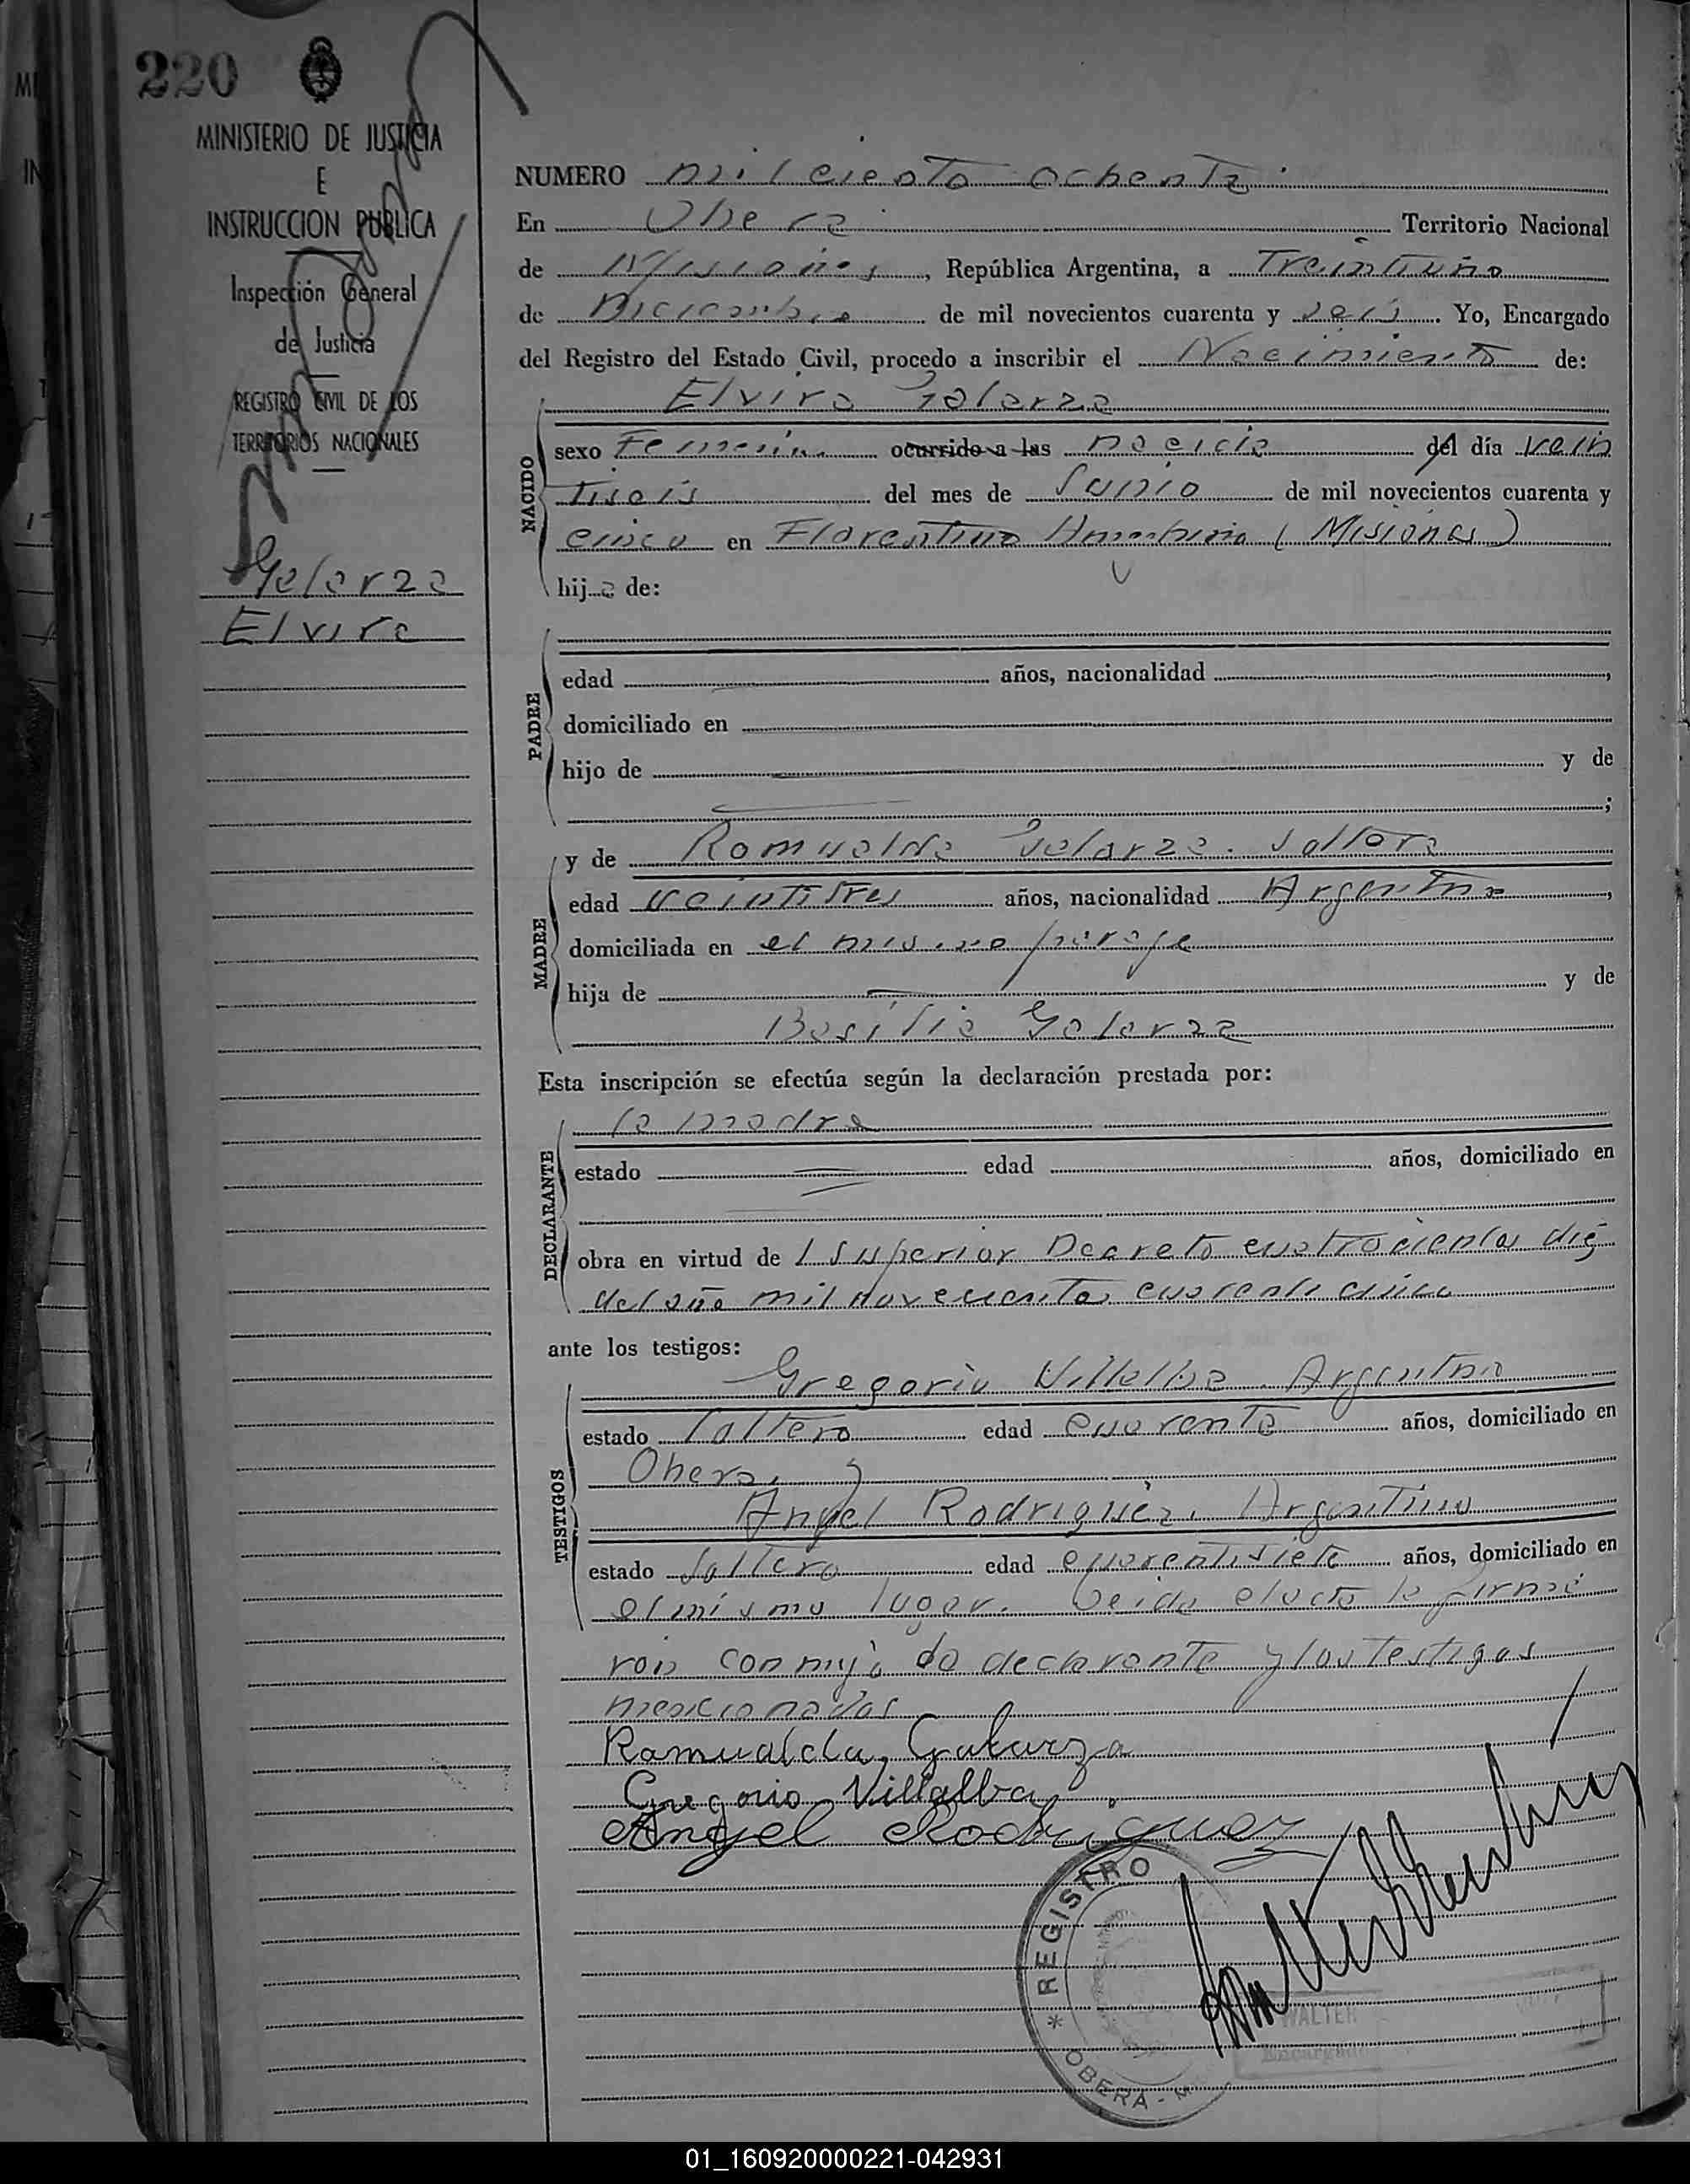 220
MINISTERIO DE JUSTICIA
E
INSTRUCCION PUBLICA
Inspección General
de Justicia
REGISTRO CIVIL DE LOS
TERRITORIOS NACIONALES
Galarza
Elvira
NUMERO mil ciento ochenta
En Obera Territorio Nacional
de Misiones, República Argentina, a Treintiuno
de Diciembre de mil novecientos cuarenta y seis. Yo, Encargado
del Registro del Estado Civil, procedo a inscribir el Nacimiento de:
Elvira Galarza
NACIDO
sexo Femenino ocurrido a las nacida del día vein
tiseis del mes de Junio de mil novecientos cuarenta y
cinco en Florentino Ameghino (Misiones)
hija de:
PADRE
edad años, nacionalidad ,
domiciliado en
hijo de y de
;
MADRE
y de Romualda Galarza. soltera
edad veintitres años, nacionalidad Argentina,
domiciliada en el mismo paraje
hija de y de
Basilia Galarza
Esta inscripción se efectúa según la declaración prestada por:
DECLARANTE
la madre
estado edad años, domiciliado en
obra en virtud de l Superior Decreto cuatrocientos diez
del año mil novecientos cuarenti cinco
ante los testigos:
TESTIGOS
Gregorio Villalba. Argentino
estado Soltero edad cuarenta años, domiciliado en
Obera. y
Angel Rodriguez. Argentino
estado Soltero edad cuarentisiete años, domiciliado en
el mismo lugar. Leida el acta la firma
ron conmigo la declarante y los testigos
mencionados
Romualda Galarza
Gregorio Villalba
Angel Rodriguez
* REGISTRO
OBERA - M
WALTER
Encargado
01_160920000221-042931